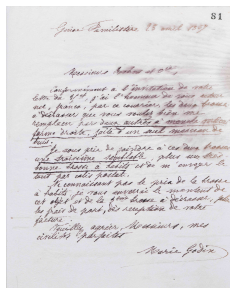 81
Guise Familistère 28 avril 1897
Messieurs
Conformément à l'invitation de votre
lettre du j'ai l'honneur de vous
franco, par ce courrier, les deux brosses
à détacher que vous voulez bien me
remplacer par deux autres à manche
forme droite, fait d'un seul morceau de
buis.
Je vous prie de joindre à ces deux brosses
une troisième semblable, plus une très
bonne brosse à habits, et de m'envoyer le
tout par colis postal.
Ne connaissant pas le prix de la brosse
à habits, je vous enverrai le montant de
cet objet et de la brosse à détacher, plus
les frais de port, dès réception de votre
facture.
Veuillez agréer, Messieurs, mes
civilités parfaites
Marie Godin